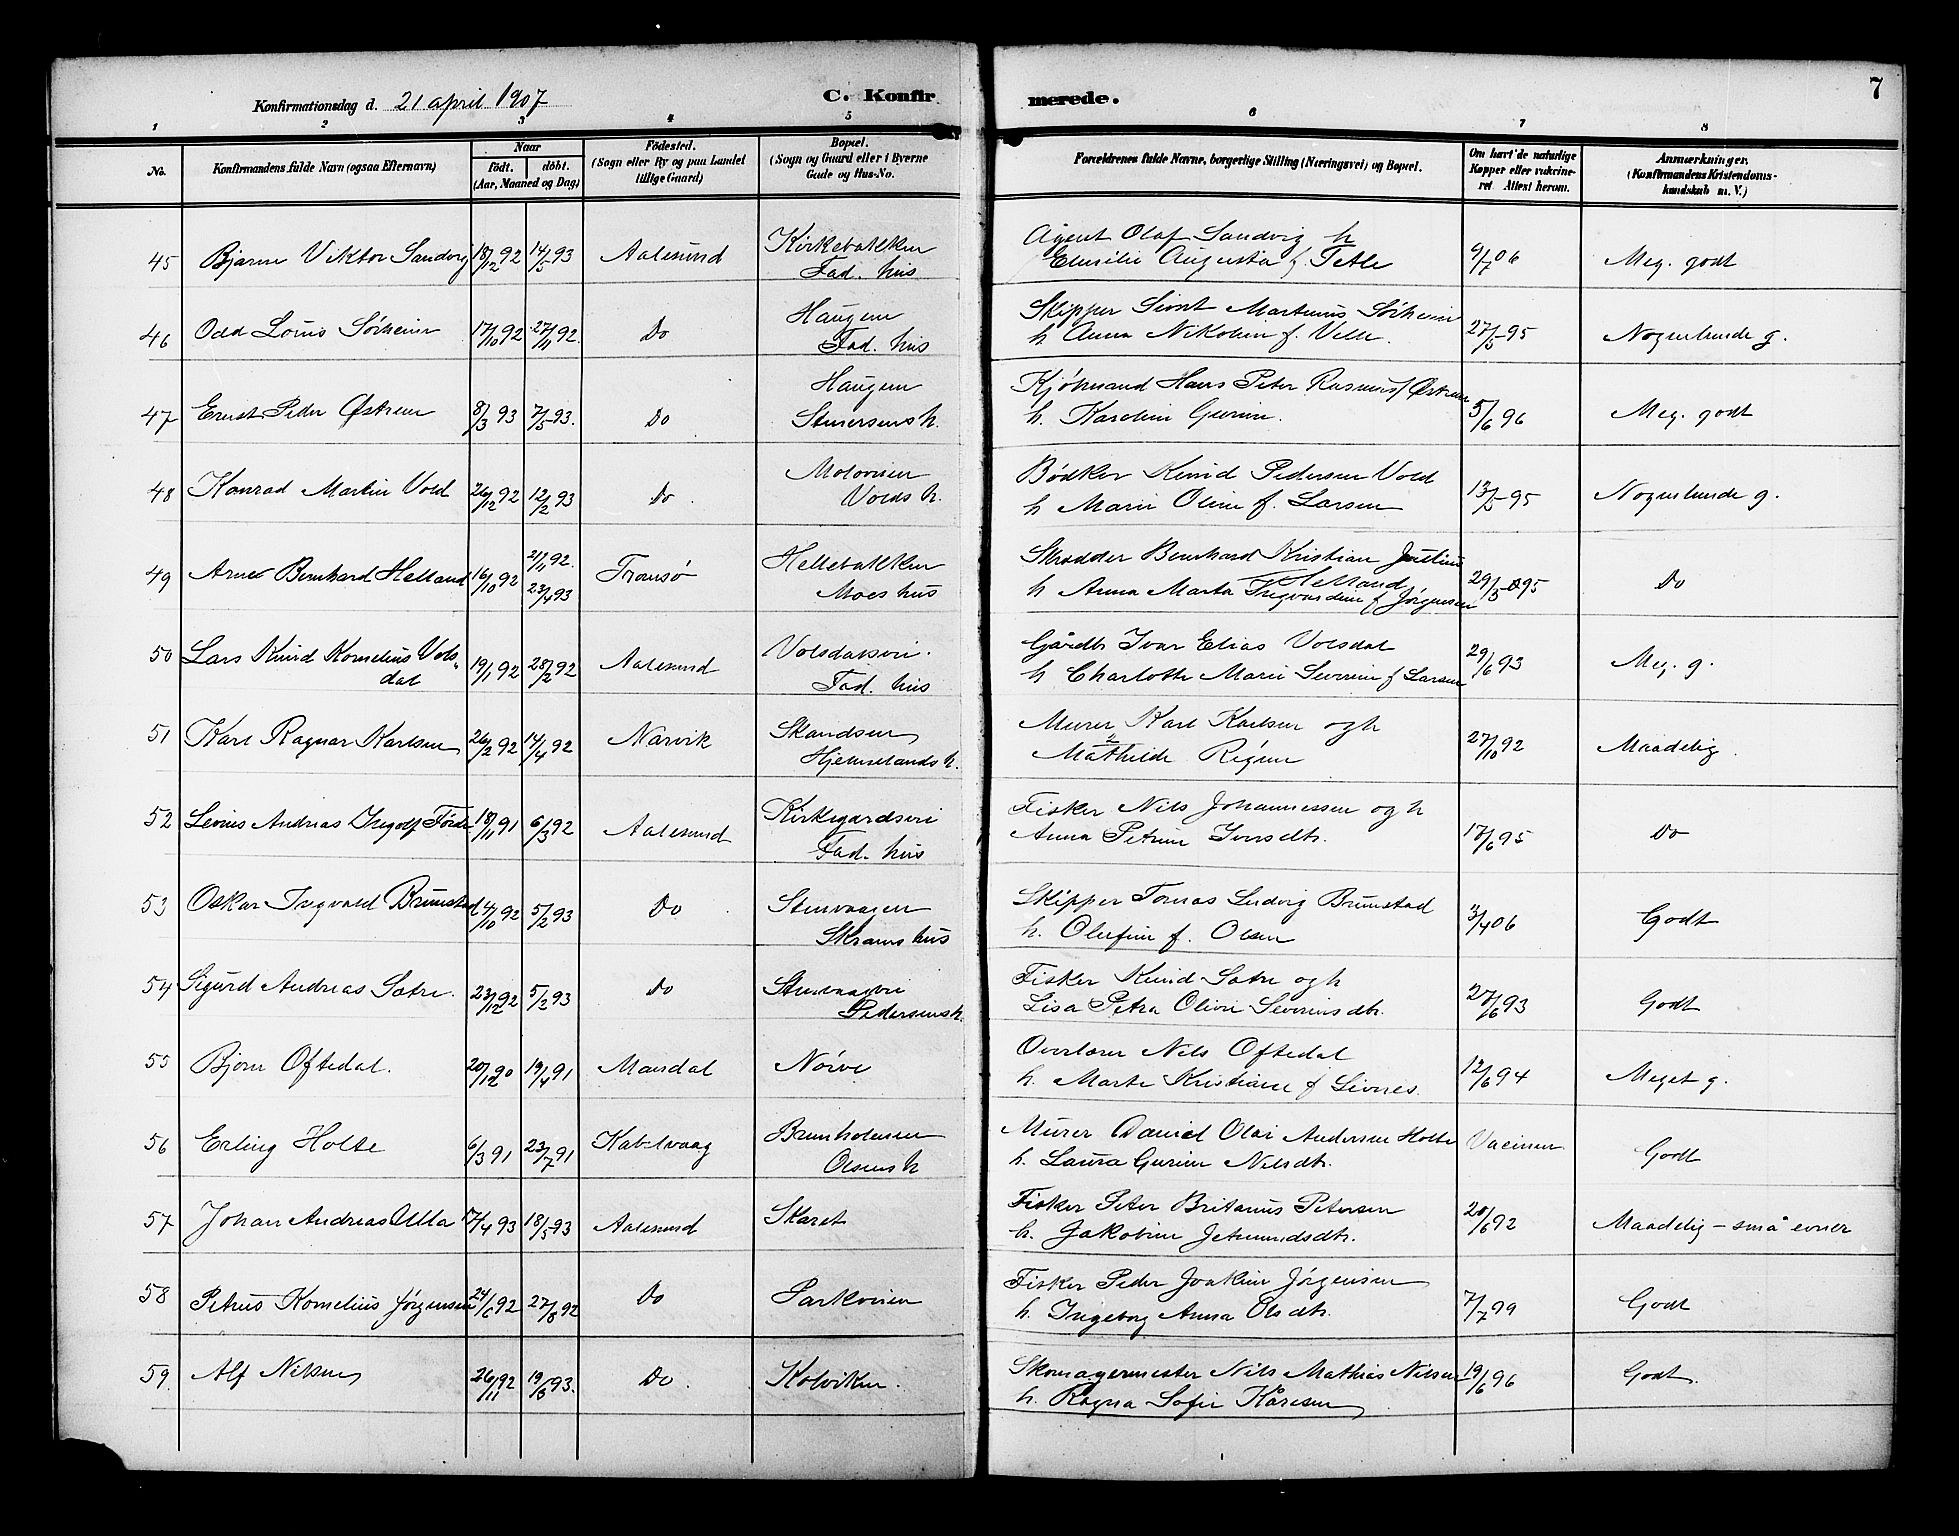 7
Konfirmationsdag d. 21 april 1907
C. Konfir merede.
1 2 3 4 5 6 7 8
No.
Konfirmandens fulde Navn (ogsaa Efternavn)
Naar
födt. döbt.
(Aar, Maaned og Dag)
Födested.
(Sogn eller By og paa Landet
tillige Gaard)
Bopæl.
(Sogn og Gaard eller i Byerne
Gade og Hus-No.
Forældrenes fulde Navne, borgerlige Stilling (Næringsvei) og Bopæl.
Om havt de naturlige
Kopper eller vakcine-
ret. Attest herom.
Anmærkninger.
(Konfirmandens Kristendoms-
kundskab m. V.)
45 Bjarne Viktor Sandvig 18/12 92 14/5 93 Aalesund Kirkebakken
Fad. hus
Agent Olaf Sandvig h
Emilie Augusta f. Tetle 9/7 06 Meg. godt
46 Odd Louis Sörheim 17/10 92 27/11 92. Do Haugen
Fad. hus
Skipper Sivert Martinus Sörheim
h Anna Nikoline f. Velle. 27/5 95 Nogenlunde g.
47 Ernst Peder Østrem 8/3 93 7/5 93. Do Haugen
Stenersens h.
Kjøbmand Hans Peter Rasmus Østrem
h. Karoline Gurine. 5/6 96 Meg. godt
48 Konrad Martin Vold 26/12 92 12/2 93 Do. Moloveien
Volds h.
Bødker Knud Pedersen Vold
h Marie Oline f. Larsen 13/5 95 Nogenlunde g.
49 Arne Bernhard Helland 16/10 92 21/11 92. 23/4 93 Tromsø Hellebakken
Moes hus
Skrædder Bernhard Kristian Julius
Helland
h Anna Marta Ingvardine f Jørgensen 29/5 95 Do
50 Lars Knud Kornelius Vols-
dal 19/1 92 28/2 92 Aalesund Volsdalsvei.
Fad. hus
Gårdbr Ivar Elias Volsdal
h Charlotte Marie Severine f Larsen 29/6 93 Meg. g.
51 Karl Ragnar Karlsen 26/2 92 14/4 92 Narvik Skandsen
Hjemselands h.
Murer Karl Karlsen og h
Mathilde Regine 27/10 92 Maadelig.
52 Levius Andreas Ingolf Förde 18/11 91 6/3 92 Aalesund Kirkegardsvei
Fad. hus
Fisker Nils Johannessen og h
Anna Petrine Iversdtr. 17/6 95 Do
53 Oskar Ingvald Brunstad 24/10 92 5/2 93 Do Stenvaagen
Skrams hus
Skipper Tomas Ludvig Brunstad
h. Olufine f. Olsen 3/4 06 Godt
54 Sigurd Andreas Sætre. 23/12 92 5/2 93 Do Stenvaagen
Pedersens h.
Fisker Knud Sætre og h
Lisa Petra Olivie Severinsdtr. 27/6 93 Godt
55 Bjørn Oftedal. 20/12 90 19/4 91 Mandal Nørve
Overlærer Nils Oftedal
h. Marte Kristiane f Sivnes. 12/6 94 Meget g.
56 Erling Holte 6/3 91 23/7 91 Kabelvaag Brunholmen
Olsens h
Murer Daniel Olai Andersen Holte
h. Laura Gurine Nilsdtr. Vaccinen Godt
57 Johan Andreas Ulla 17/4 93 18/5 93 Aalesund Skaret
Fisker Peter Britanus Petersen
h. Jakobine Jetmundsdtr. 20/6 92 Maadelig - små evner
58 Petrus Kornelius Jørgensen 24/6 92 27/8 92 Do Parkveien
Fisker Peder Joakim Jørgensen
h. Ingeborg Anna Olsdtr. 7/7 99 Godt
59. Alf Nilsen 26/11 92 19/8 93. Do. Kolviken.
Skomagermester Nils Mathias Nilsen
h. Ragna Sofie Kåresen 19/6 96 Godt.